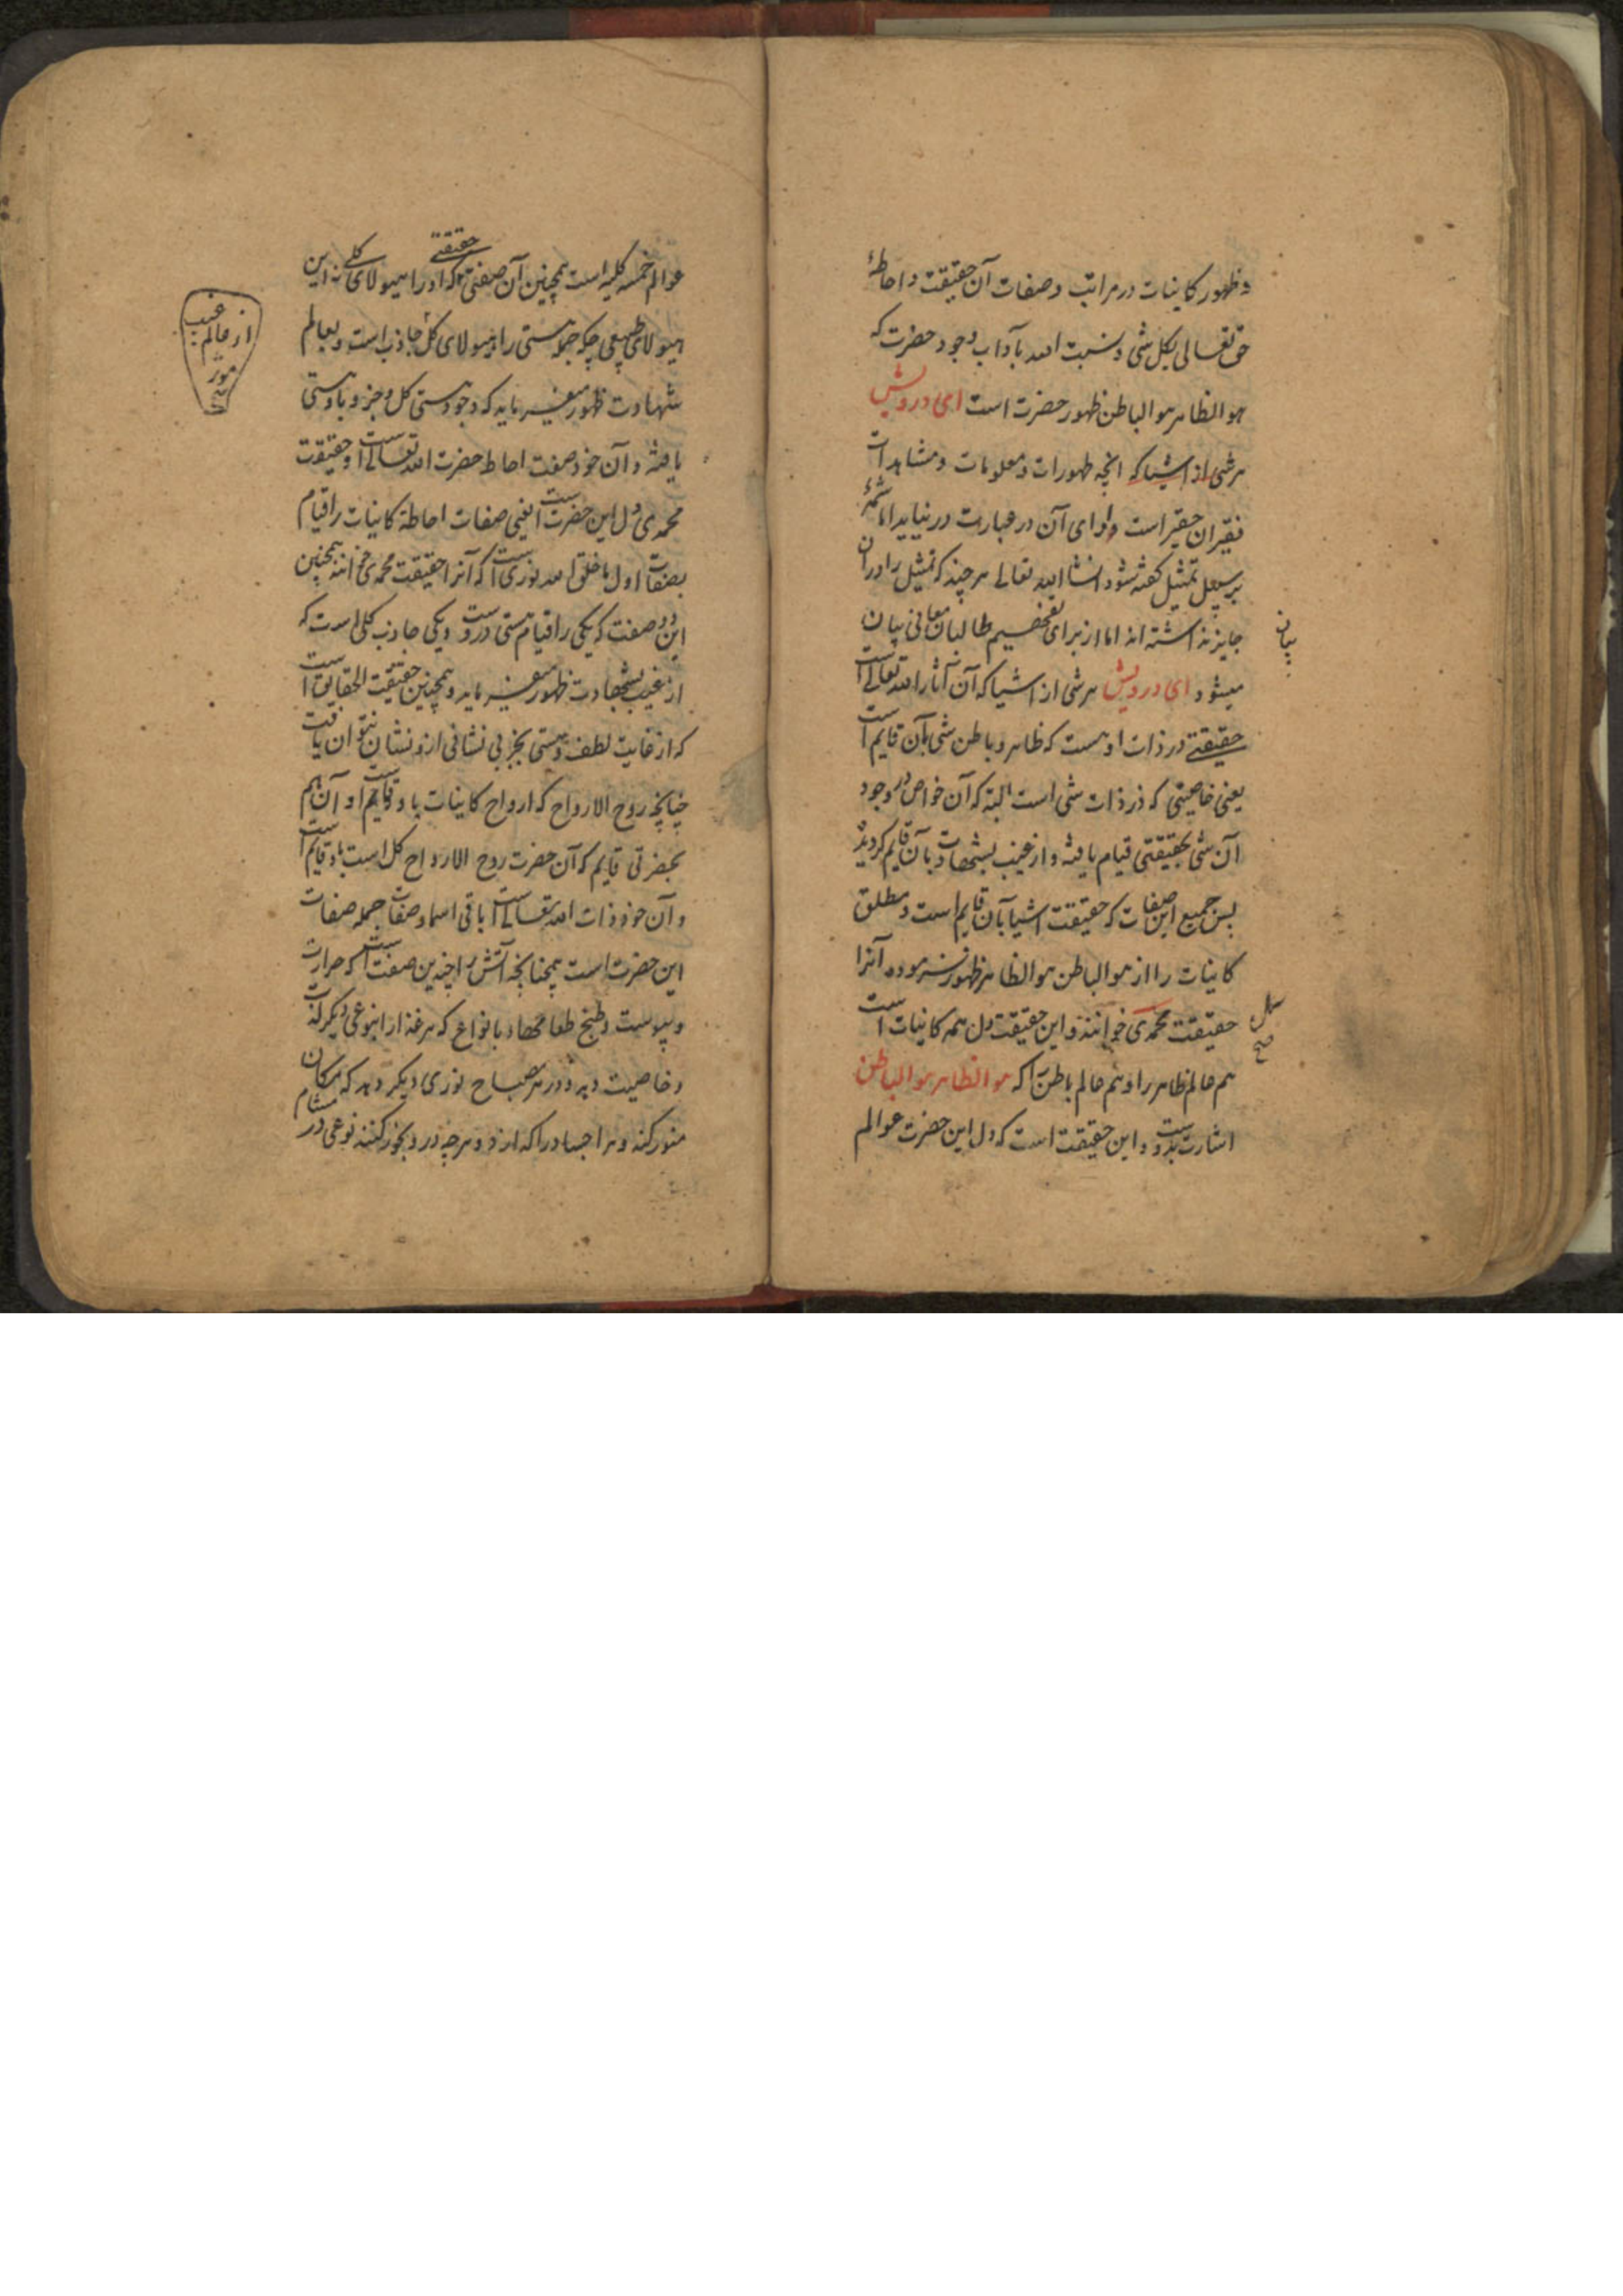 و ظهور کاینات در مراتب و صفات آن حقیقت و احاطهٔ
حق تعالی بکل شی و نسبت الله بآداب وجود حضرت که
هو الظاهر هو الباطن ظهور حضرت است ای درویش
هر شی از اشیا که انچه ظهورات و معلومات و مشاهدات
فقیران حقیر است و ادای آن در عبارت در نیاید اما شمهٔ
بر سبیل تمثیل گفته شود انشا الله تعالی هر چند که تمثیل را دران
جایز نداشته اند اما از برای تفخسیم طالبان معانی بیان
بیان
میشود ای درویش هر شی از اشیا که آن آثار الله تعالی است
حقیقتے در ذات او هست که ظاهر و باطن شی بآن قایم است
یعنی خاصیتی که در ذات شی است البته که آن خواص در وجود
آن شی بحقیقتی قیام یافته و از غیب بشهادت بآن قایم گردیده
پس جمیع این صفات که حقیقت اشیا بآن قایم است و مطلق
کاینات را از هو الباطن هو الظاهر ظهور فرموده آنرا
حقیقت محمدی خوانند و این حقیقت دل همه کاینات است
کل
صح
هم عالم ظاهر را و هم عالم باطن را که هو الظاهر هو الباطن
اشارت بدوست و این حقیقت است که دل این حضرت عوالم
عوالم خمسه کلیه است همچنین آن صفتی حقیقتے که او را هیولای کلی نه این
هیولای طبیعی چه که جمله هستی را هیولای کل جاذب است و بعالم
از عالم غیب
صح
شهادت ظهور میفرماید که وجود هستی کل و جزو باو هستی
یافته و آن خود صفت احاطه حضرت الله تعالی است و حقیقت
محمدی دل این حضرت است یعنی صفات احاطهٔ کاینات را قیام
بصفات اول ما خلق الله نوری است که آنرا حقیقت محمدی خوانند همچنین
این دو صفت که یکی را قیام هستی دروست و یکی جاذب کلی است که
از غیب بشهادت ظهور میفرماید و همچنین حقیقت الحقایق است
که از غایت لطف هستی بجز بی نشانی ازو نشان نتوان یافت
چنانچه روح الارواح که ارواح کاینات باو قایم است و آن هم
بحضرتی قایم که آن حضرت روح الارواح کل است باو قایم است
و آن خود ذات الله تعالی است باقی اسما و صفات جمله صفات
این حضرت است همچنانچه آتش را چندین صفت است که حرارت
و یبوست و طبخ طعامها دهد بانواع که هر غذا را بنوعی دیگر لذت
و خاصیت دهد و در هر صباح نوری دیگر دهد که مکان
منور کند و هر اجساد را که ازو و هر چه درو بخور کنند نوعی در مشام